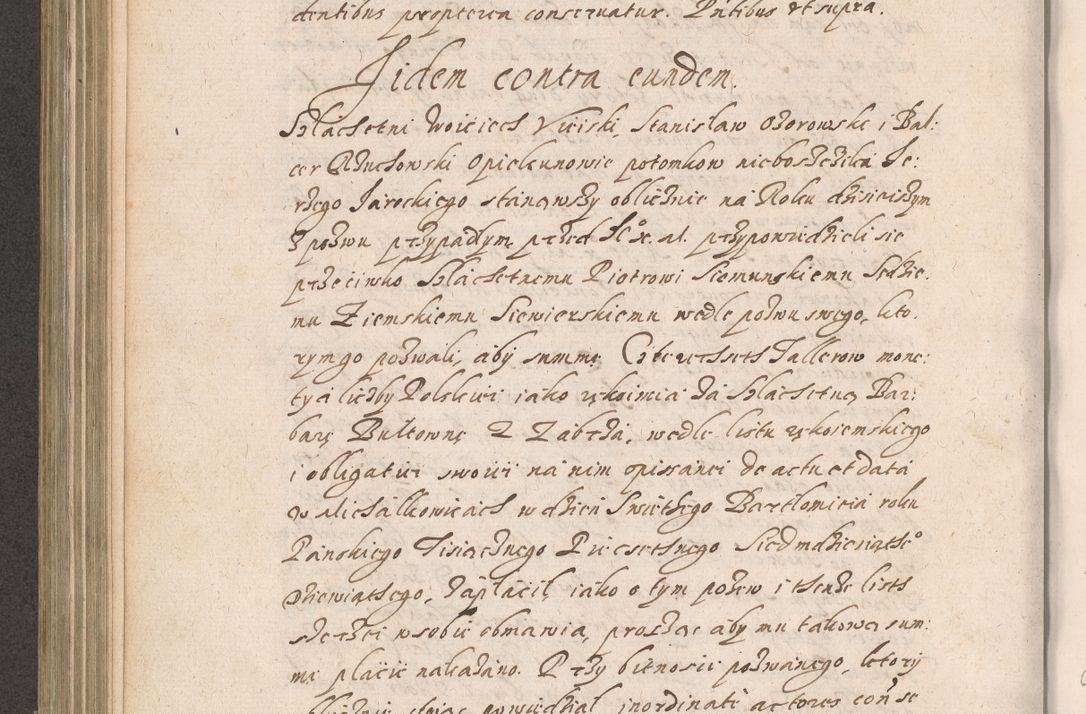 dentibus propterea conseruatur. Pntibus vt supra.
Jidem contra eundem.
Szlachetni Woiciech Viciski, Stanislaw Ozorowski i Bal:
cer Kluchowski Opiekunowie potomkow nieboszczika Je:
rzego Jarockiego stanąwszy oblicznie na Roku dzisieiszym
z pozwu przypadłym przed przypowiedzieli sie
przeciwko Szlachetnemu Piotrowi Siemunskiemu Sedzie:
mu Ziemskiemu Siewierskiemu wedle pozwu swego, kto:
rym go pozwali, aby summe Czterechset Tallerow mone:
ty i liczby Polskiei iako rękoimia za Szlachetną Bar:
barę z Zabrza, wedle listu rękoiemskiego
i obligatiei swoiei na nim opissanei de actu et data
w Michalkowicach w dzien Swiethego Bartlomieia roku
Panskiego Tisiącznego Piecsethnego Siedmdziesiąthego
dziewiąthego, zaplacił, iako o tym pozew i thenze listh
szerzei w sobie obmawia, prosząc aby mu takową sum:
mę placic nakazano. Przy bitnosci pozwanego, ktory
oblicznie stoiąc powiedzial inordinate actores con se